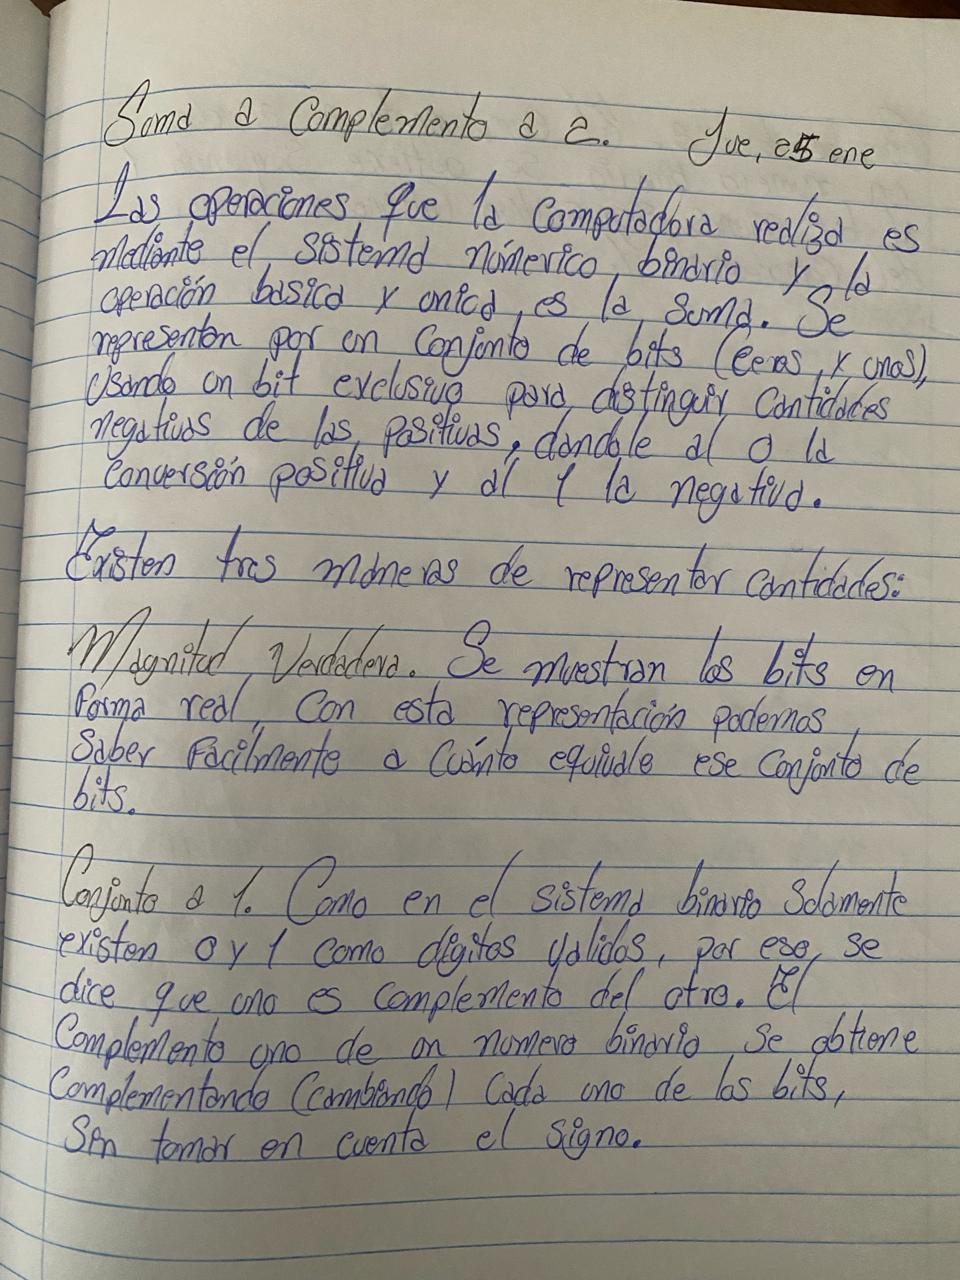 Suma a Complemento a 2. Jue, 25 ene
Las operaciones que la computadora realiza es
mediante el sistema númerico binario y la
operación basica y unica, es la suma. Se
representan por un conjunto de bits (ceros y unos),
usando un bit exclusivo para distinguir cantidades
negativas de las positivas, dandole al 0 la
conversión positiva y al 1 la negativa.
Existen tres maneras de representar cantidades:
Magnitud Verdadera. Se muestran los bits en
forma real, con esta representación podemos
saber facilmente a cuánto equivale ese conjunto de
bits.
Conjunto a 1. Como en el sistema binario solamente
existen 0 y 1 como dígitos validos, por eso, se
dice que uno es complemento del otro. El
complemento uno de un numero binario se obtiene
complementando (cambiando) cada uno de los bits,
sin tomar en cuenta el signo.